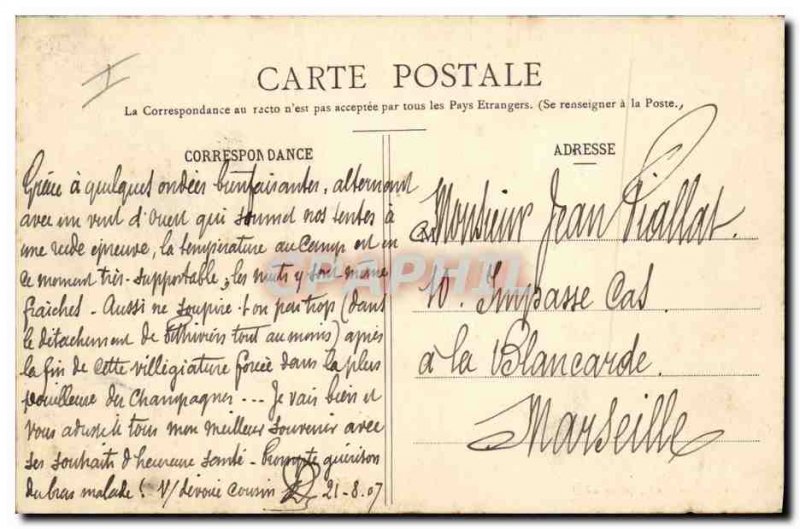 CARTE POSTALE
La Correspondance au racto n'est pas acceptée par tous les Pays Etrangers. (Se renseigner à la Poste.)
CORRESPONDANCE
Grâce à quelques ondées bienfaisantes, alternant
avec un vent d'Ouest qui soumet nos tentes à
une rude épreuve, la température au Camp est en
ce moment très-supportable; les nuits y sont même
fraîches. Aussi ne soupire-t-on pas trop (dans
le détachement de tout au moins) après
la fin de cette villégiature forcée dans la plus
pouilleuse des Champagnes... Je vais bien et
vous adresse à tous mon meilleur souvenir avec
ses souhaits d'heureuse santé. Prompte guérison
du bras malade! V/ dévoué cousin 21-8-07
ADRESSE
Monsieur Jean Viallat.
10. Impasse Cas.
à la Blancarde.
Marseille
CPAPHIL